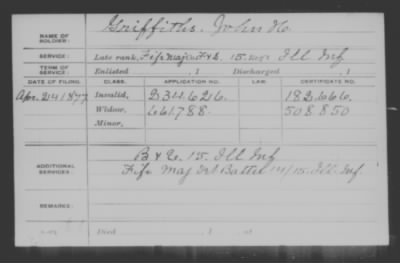 NAME OF SOLDIER: Griffiths, John H.
SERVICE: Late rank, Fife Maj. F & S. 15. Ill Inf
TERM OF SERVICE: Enlisted , 1 Discharged , 1
DATE OF FILING. CLASS. APPLICATION NO. LAW. CERTIFICATE NO.
Apr. 24 1877 Invalid, 234.626. 182.666.
Widow, 661.788. 508.850
Minor,
ADDITIONAL SERVICES: B & E. 15. Ill Inf
Fife Maj Vet Battn 14/15. Ill. Inf.
REMARKS:
Died , 1 , at